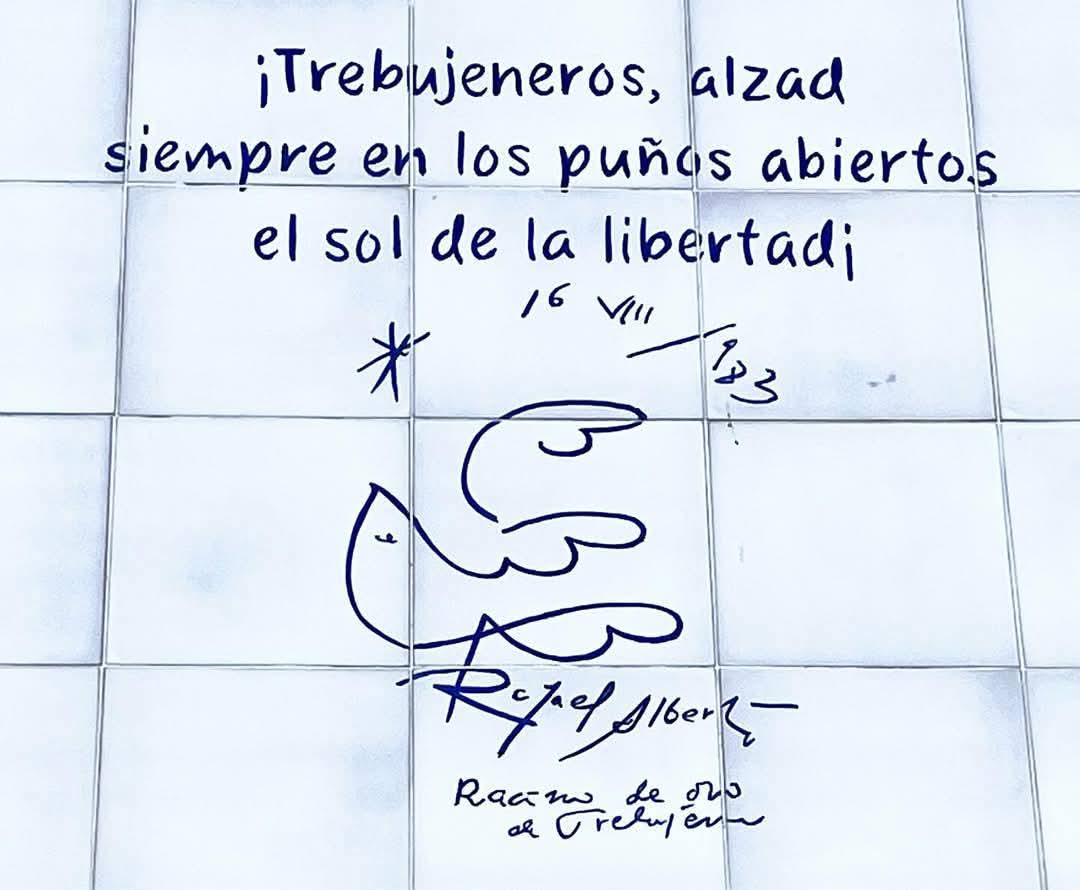 ¡Trebujeneros, alzad
siempre en los puños abiertos
el sol de la libertad¡
16 VIII
983
Rafael Alberti
Racimo de oro
de Trebujena